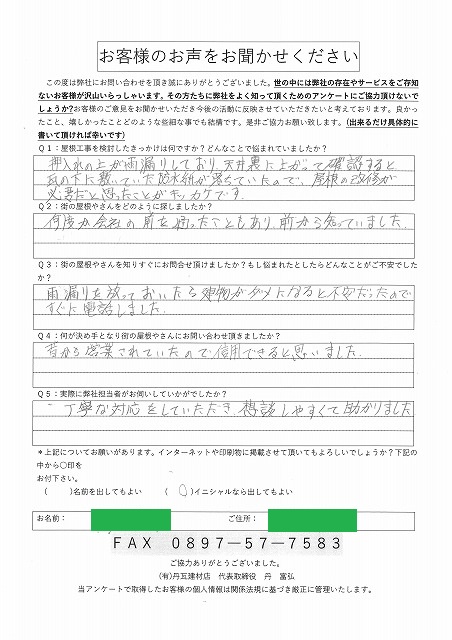 お客様のお声をお聞かせください
この度は弊社にお問い合わせを頂き誠にありがとうございました。世の中には弊社の存在やサービスをご存知
ないお客様が沢山いらっしゃいます。その方たちに弊社をよく知って頂くためのアンケートにご協力頂けないで
しょうか?お客様のご意見をお聞かせいただき今後の活動に反映させていただきたいと考えております。良かっ
たこと、嬉しかったことどのような些細な事でも結構です。是非ご協力お願い致します。(出来るだけ具体的に
書いて頂ければ幸いです)
Q1:屋根工事を検討したきっかけは何ですか?どんなことで悩まれていましたか?
押入れの上が雨漏りしており、天井裏に上がって確認すると
瓦の下に敷いていた防水紙が落ちていたので、屋根の改修が
必要だと思ったことがキッカケです。
Q2:街の屋根やさんをどのように探しましたか?
何度か会社の前を通ったこともあり、前から知っていました。
Q3:街の屋根やさんを知りすぐにお問合せ頂けましたか?もし悩まれたとしたらどんなことがご不安でした
か?
雨漏りを放っておいたら建物がダメになると不安だったので
すぐに電話しました。
Q4:何が決め手となり街の屋根やさんにお問い合わせ頂きましたか?
昔から営業されていたので信用できると思いました。
Q5:実際に弊社担当者がお伺いしていかがでしたか?
丁寧な対応をしていただき、相談しやすくて助かりました
*上記についてお願いがあります。インターネットや印刷物に掲載させて頂いてもよろしいでしょうか?下記の
中から〇印を
お付下さい。
( )名前を出してもよい (〇)イニシャルなら出してもよい
お名前: ご住所:
FAX 0897-57-7583
ご協力ありがとうございました。
(有)丹瓦建材店 代表取締役 丹 富弘
当アンケートで取得したお客様の個人情報は関係法規に基づき厳正に管理いたします。